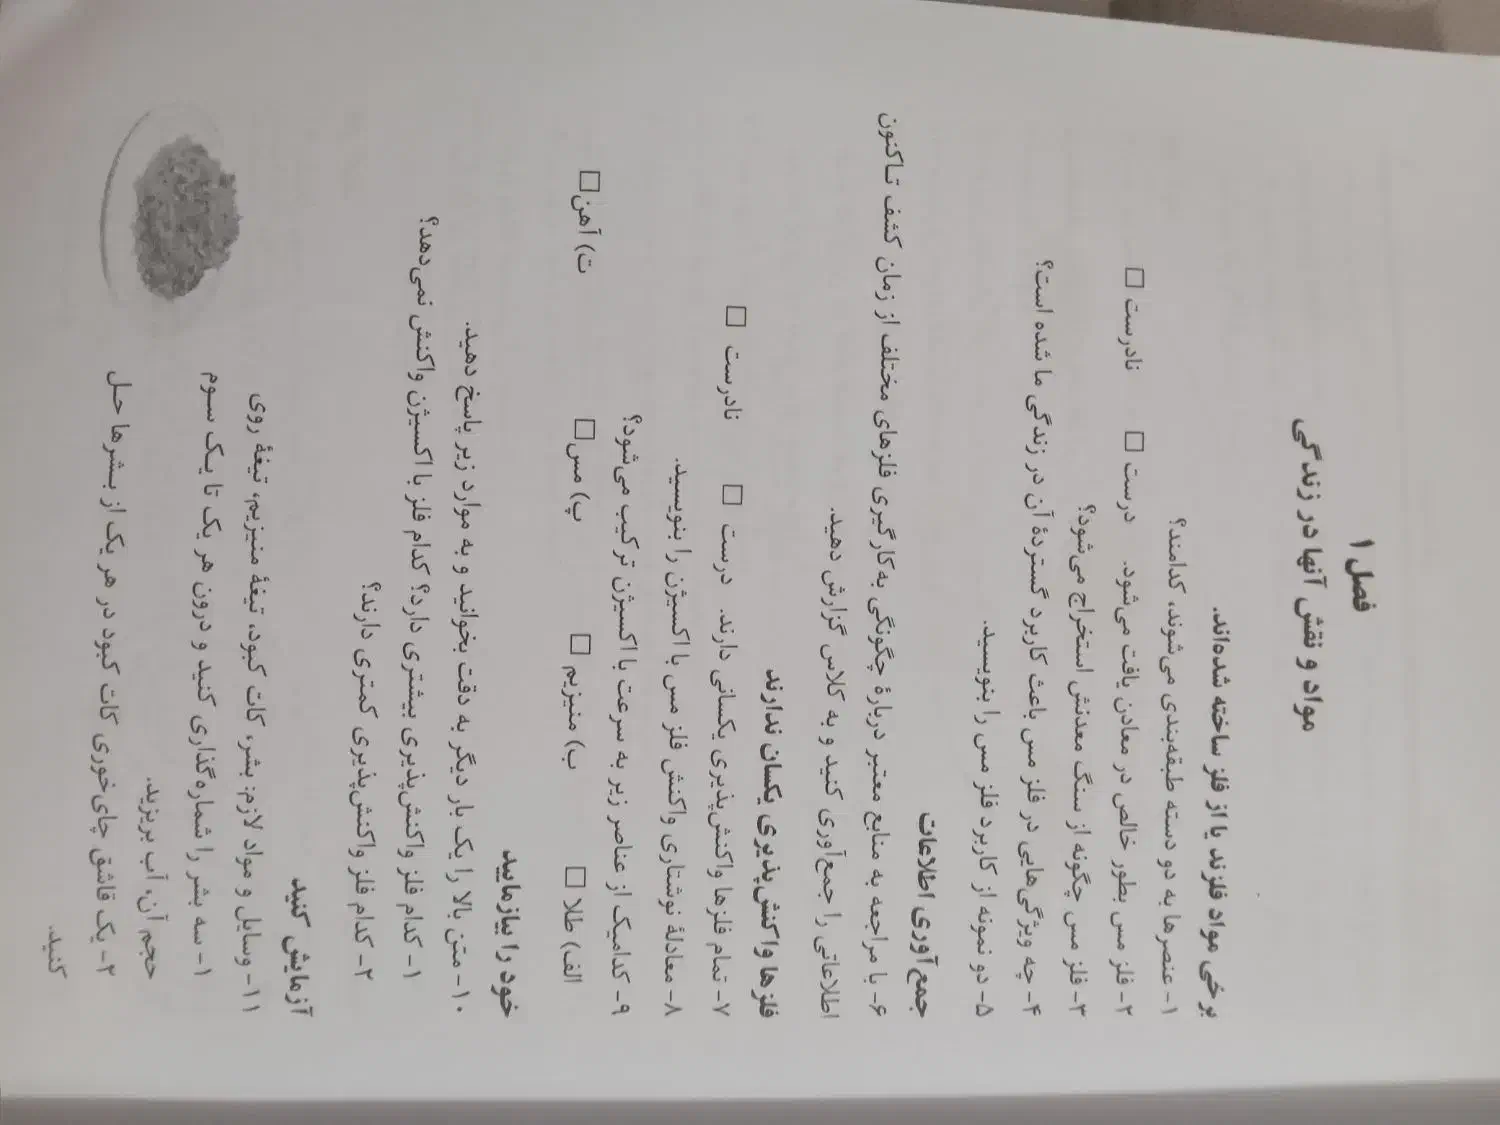 فصل ۱
مواد و نقش آنها در زندگی
برخی مواد فلزند یا از فلز ساخته شده‌اند.
۱- عنصرها به دو دسته طبقه‌بندی می‌شوند، کدامند؟
۲- فلز مس بطور خالص در معادن یافت می‌شود. درست □ نادرست □
۳- فلز مس چگونه از سنگ معدنش استخراج می‌شود؟
۴- چه ویژگی‌هایی در فلز مس باعث کاربرد گستردهٔ آن در زندگی ما شده است؟
۵- دو نمونه از کاربرد فلز مس را بنویسید.
جمع آوری اطلاعات
۶- با مراجعه به منابع معتبر دربارهٔ چگونگی به‌کارگیری فلزهای مختلف از زمان کشف تاکنون
اطلاعاتی را جمع‌آوری کنید و به کلاس گزارش دهید.
فلزها واکنش‌پذیری یکسان ندارند
۷- تمام فلزها واکنش‌پذیری یکسانی دارند. درست □ نادرست □
۸- معادلهٔ نوشتاری واکنش فلز مس با اکسیژن را بنویسید.
۹- کدامیک از عناصر زیر به سرعت با اکسیژن ترکیب می‌شود؟
الف) طلا □ ب) منیزیم □ پ) مس□ ت) آهن□
خود را بیازمایید
۱۰- متن بالا را یک بار دیگر به دقت بخوانید و به موارد زیر پاسخ دهید.
۱- کدام فلز واکنش‌پذیری بیشتری دارد؟ کدام فلز با اکسیژن واکنش نمی‌دهد؟
۲- کدام فلز واکنش‌پذیری کمتری دارند؟
آزمایش کنید
۱۱- وسایل و مواد لازم: بشر، کات کبود، تیغهٔ منیزیم، تیغهٔ روی
۱- سه بشر را شماره‌گذاری کنید و درون هر یک تا یک سوم
حجم آن، آب بریزید.
۲- یک قاشق چای‌خوری کات کبود در هر یک از بشرها حل
کنید.